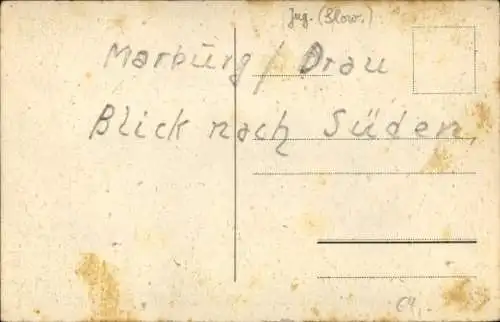 Jug. (Slow.)
Marburg / Drau
Blick nach Süden,
64,